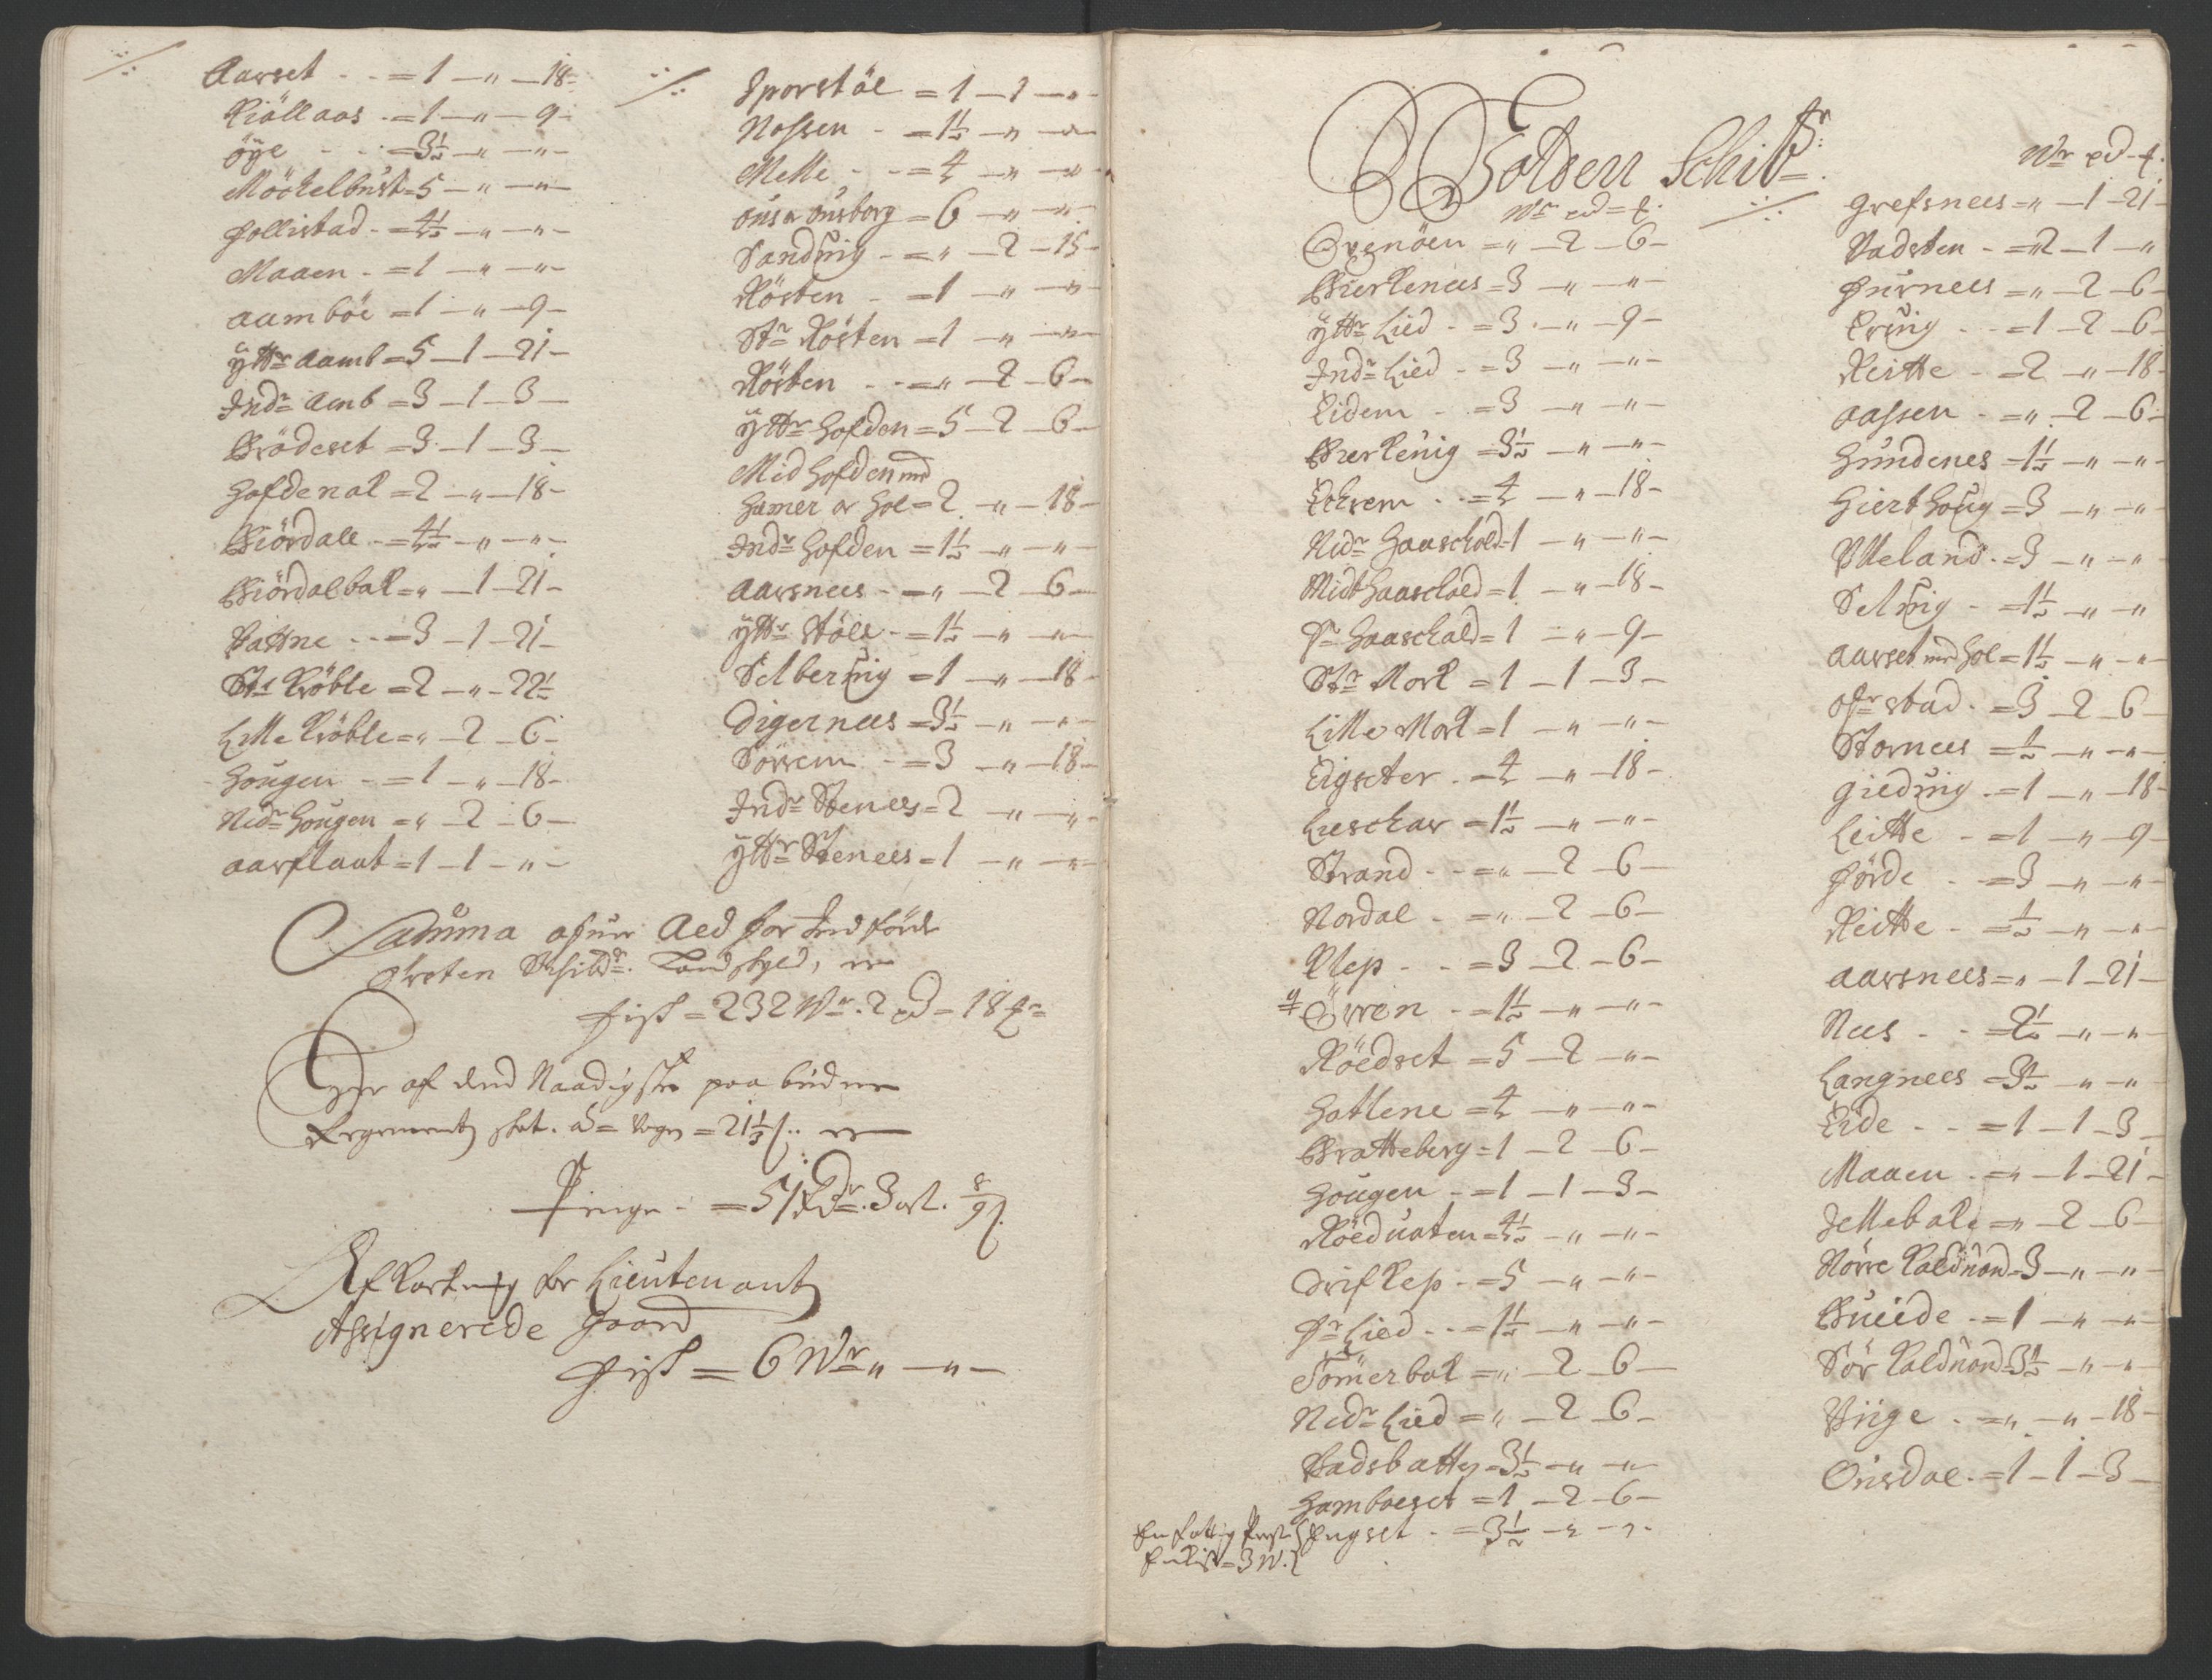 Aarset - - = 1 — „ — 18 -
Kiöllaas - = 1 — „ — 9 -
Öÿe - - - = 3½ — „ — „ -
Möckelbust = 5 — „ — „ -
Follistad - = 4½ — „ — „ -
Maaen - = 1 — „ — „ -
Aamböe = 1 — „ — 9 -
ÿttr Aamb = 5 — 1 — 21 -
Indr Amb = 3 — 1 — 3 -
Brödeset = 3 — 1 — 3 -
Hofdenak = 2 — „ — 18 -
Biördall - = 4½ — „ — „ -
Biördalbak = „ — 1 — 21 -
Vattne - - = 3 — 1 — 21 -
Str Kröble = 2 — „ — 22½
Lille Kröble = „ — 2 — 6 -
Hougen - = 1 — „ — 18 -
Nedr Hougen = „ — 2 — 6 -
Aarflaat = 1 — 1 — „ -
Sporstöl = 1 — 1 — „ -
Nossen - = 1½ — „ — „ -
Melle - - = 4 — „ — „ -
Ous og Ousborg = 6 — „ — „ -
Sanduig - = „ — 2 — 15 -
Rösten - = 1 — „ — „ -
Str Rösten = 1 — „ — „ -
Rösten - - = „ — 2 — 6 -
ÿttr Hofden = 5 — 2 — 6 -
Mid Hofden md
Hamer or Hol = 2 — „ — 18 -
Indr Hofden = 1½ — „ — „ -
Aarsnees - = „ — 2 — 6 -
ÿttr Stöle - = 1½ — „ — „ -
Selberuig = 1 — „ — 18 -
Digernees = 3½ — „ — „ -
Sörrem - = 3 — „ — 18 -
Indr Stenees = 2 — „ — „ -
ÿttr Stenees = 1 — „ — „ -
Summa ofuer Aed for Indförde
Skibdr. Landskyld, er
Fisk = 232 Wr. 2 pd - 18 -
Der af dend Naadigste paa budne
Regements skat. á = Woge = 21⅓ s. er
Penge - = 51 Rdr. 3 ort. 8/9 s
Afkortning for Lieutenant
Assignerede Gaard
Fisk = 6 Wr „ — „ -
Wolden Schibr:
Wr pd -
Ouenöen = „ — 2 — 6 -
Bierkenees = 3 — „ — „ -
ÿttr Lied - = 3 — „ — 9 -
Indr Lied - = 3 — „ — „ -
Eidem - - = 3 — „ — „ -
Bierkeuig = 3½ — „ — „ -
Echrem - - = 4 — „ — 18 -
Nedr Haaschold = 1 — „ — „ -
Midt Haaschold = 1 — „ — 18 -
Haaschald = 1 — „ — 9 -
Str Mork = 1 — 1 — 3 -
Lille Mork = 1 — „ — „ -
Eigseter - = 4 — „ — 18 -
Lieschar = 1½ — „ — „ -
Strand - - = „ — 2 — 6 -
Nordal - = „ — 2 — 6 -
Klep - - = 3 — 2 — 6 -
Öwren - = 1½ — „ — „ -
Röedset = 5 — 2 — „ -
Hotlene = 4 — „ — „ -
Bratteberg = 1 — 2 — 6 -
Hougen - = 1 — 1 — 3 -
Röeduaten = 4½ — „ — „ -
Drifkep - = 5 — „ — „ -
Lied - - = 1½ — „ — „ -
Tömerbak = „ — 2 — 6 -
Nedr Lied = „ — 2 — 6 -
Vadsbotten = 3½ — „ — „ -
Hamboeset = 1 — 2 — 6 -
En fattig
= 3 W. Engset - = 3½ — „ — „ -
Wr pd -
Grefsnees = „ — 1 — 21 -
Vadsten - = 2 — 1 — „
Furnees = „ — 2 — 6 -
Eruig - - = 1 — 2 — 6 -
Reitte - = 2 — „ — 18 -
Aassen - = „ — 2 — 6 -
Hundenes = 1½ — „ — „ -
Hierthoug = 3 — „ — „ -
Uleland - = 3 — „ — „
Seluig - = 1½ — „ — „
Aarset md Hol = 1½ — „ — „ -
Ofrstad - = 3 — 2 — 6 -
Stornees = ½ — „ — „ -
Gieduig - = 1 — „ — 18 -
Leitte - = 1 — „ — 9 -
Förde - = 3 — „ — „ -
Reitte - = ½ — „ — „ -
Aarsnees = „ — 1 — 21 -
Nees - - = 2½ — „ — „ -
Langnees = 3½ — „ — „ -
Eide - - = 1 — 1 — 3 -
Maaen - = „ — 1 — 21 -
Jellebake = „ — 2 — 6 -
Nörre Kaldnond = 3 — „ — „ -
Bueide - = 1 — „ — „ -
Sör Kaldnond = 3½ — „ — „ -
Viige - = „ — „ — 18 -
Ousdal - = 1 — 1 — 3 -